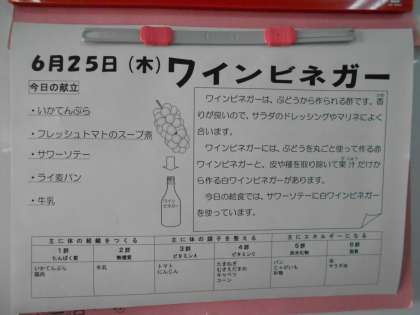 6月25日（木）ワインビネガー
今日の献立
・いかてんぷら
・フレッシュトマトのスープ煮
・サワーソテー
・ライ麦パン
・牛乳
ワイン
ビネガー
ワインビネガーは、ぶどうから作られる酢です。香
りが良いので、サラダのドレッシングやマリネによく
合います。
ワインビネガーには、ぶどうを丸ごと使って作る赤
ワインビネガーと、皮や種を取り除いて果汁だけか
ら作る白ワインビネガーがあります。
今日の給食では、サワーソテーに白ワインビネガー
を使っています。
主に体の組織をつくる 主に体の調子を整える 主にエネルギーになる
1群 2群 3群 4群 5群 6群
たんぱく質 無機質 ビタミンA ビタミンC 炭水化物 脂質
いかてんぷら 牛乳 トマト たまねぎ パン
鶏肉 にんじん むきえだまめ じゃがいも サラダ油
キャベツ 砂糖
コーン